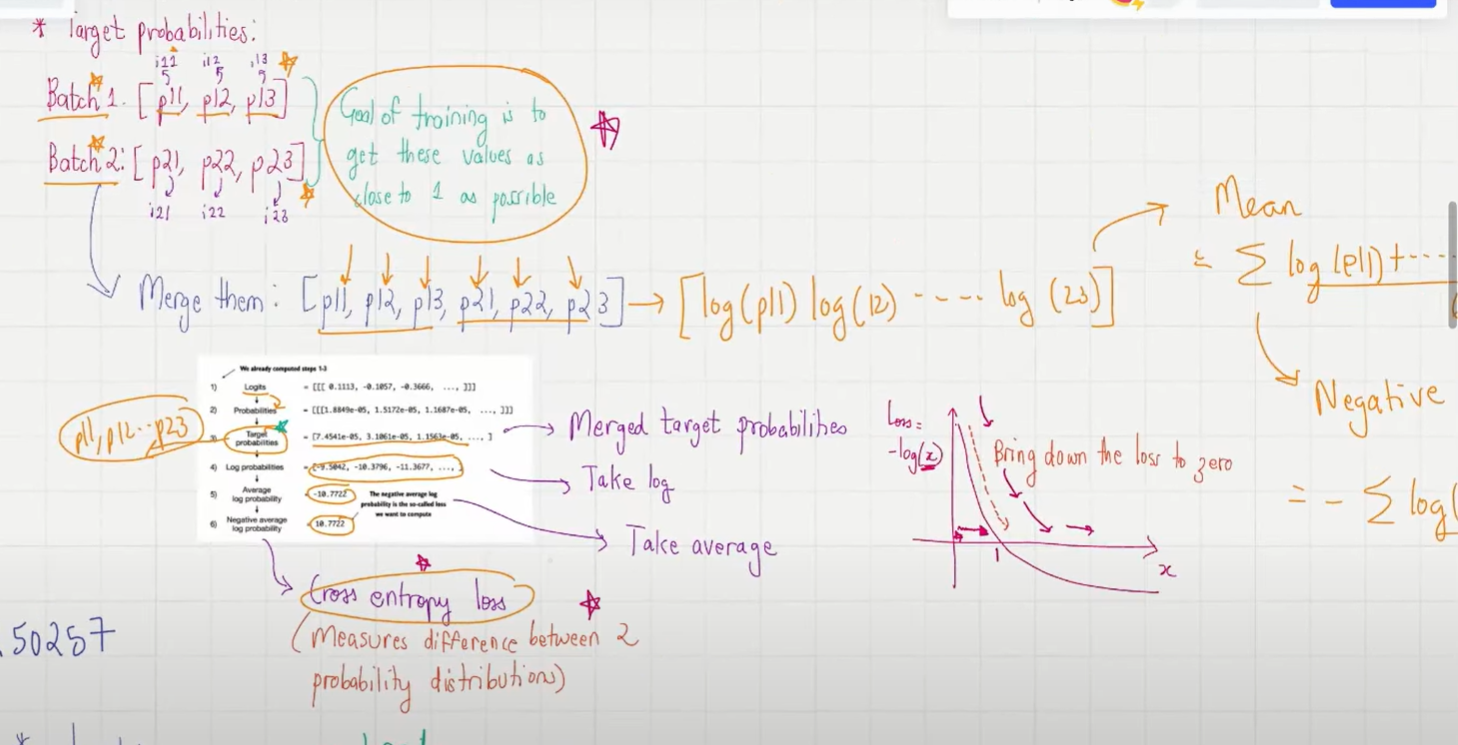 * Target probabilities:
i11 i12 i13
Batch 1. [p11, p12, p13]
Batch 2: [p21, p22, p23]
i21 i22 i23
Goal of training is to
get these values as
close to 1 as possible
Merge them: [p11, p12, p13, p21, p22, p23] → [log(p11) log(12) ---- log (23)]
Mean
= Σ log(p11) + ----
Negative
= - Σ log(
We already computed steps 1-3
1) Logits = [[[ 0.1113, -0.1057, -0.3666, ..., ]]]
2) Probabilities = [[[1.8849e-05, 1.5172e-05, 1.1687e-05, ..., ]]]
3) Target probabilities = [7.4541e-05, 3.1061e-05, 1.1563e-05, ..., ]
4) Log probabilities = [-9.5042, -10.3796, -11.3677, ..., ]
5) Average log probability = -10.7722
6) Negative average log probability = 10.7722
The negative average log
probability is the so-called loss
we want to compute
p11, p12 -- p23
Merged target probabilities
Take log
Take average
Loss =
-log(x)
Bring down the loss to zero
1
x
Cross entropy loss
(Measures difference between 2
probability distributions)
50257